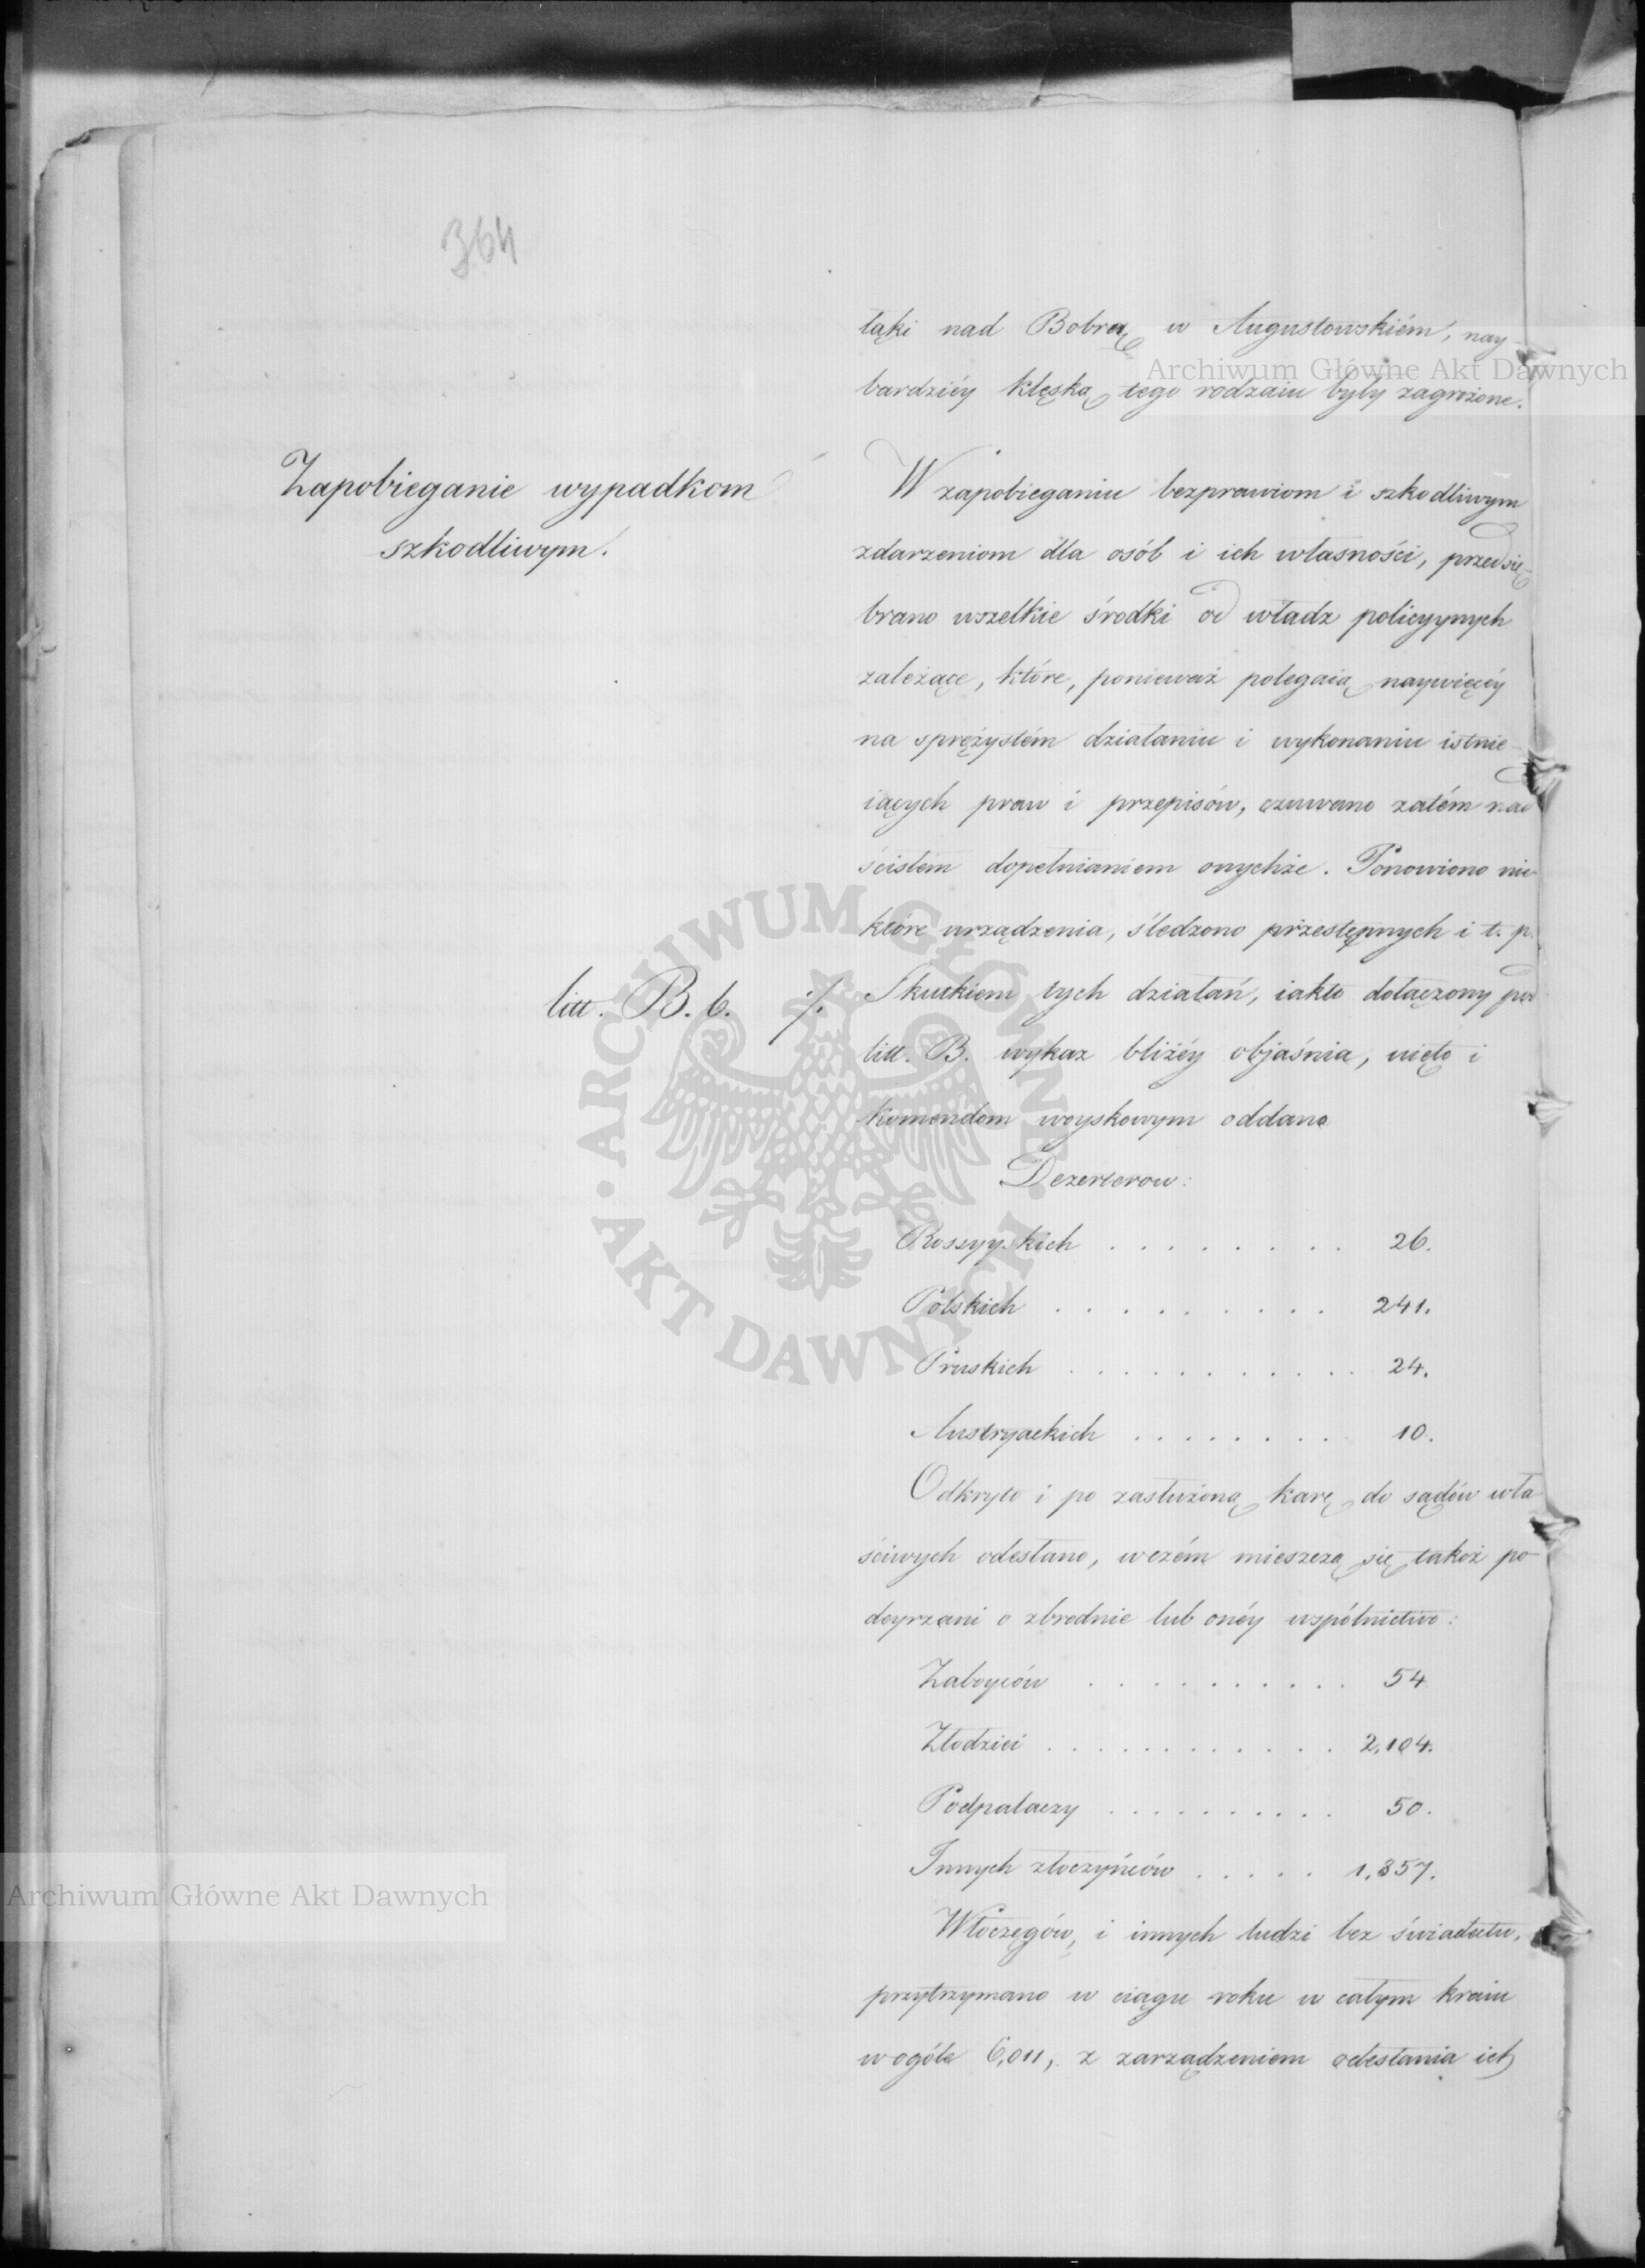 364
łąki nad Bobrą w Augustowskiém, nay-
bardziéy klęską tego rodzaiu były zagrożone.
Zapobieganie wypadkom
szkodliwym.
W zapobieganiu bezprawiom i szkodliwym
zdarzeniom dla osób i ich własności, przedsię-
brano wszelkie środki od władz policyynych
zależące, które, ponieważ polegaią naywięcéy
na sprężystém działaniu i wykonaniu istnie-
iących praw i przepisów, czuwano zatém nad
ścisłém dopełnianiem onychże. Ponowiono nie-
które urządzenia, śledzono przestępnych i t. p.
litt. B. 6. ./.
Skutkiem tych działań, iakto dołączony pod
litt. B. wykaz bliżéy objaśnia, uięto i
komendom woyskowym oddano
Dezerterow:
Rossyyskich . . . . . . . . 26.
Polskich . . . . . . . . . 241.
Pruskich . . . . . . . . . . . 24.
Austryackich . . . . . . . . 10.
Odkryto i po zasłużoną karę do sądów wła-
ściwych odesłano, wczém mieszczą się takoż po-
deyrzani o zbrodnie lub onéy wspólnictwo:
Zaboyców . . . . . . . . . . 54
Złodziei . . . . . . . . . . . 2,104.
Podpalaczy . . . . . . . . . . 50.
Innych złoczyńców . . . . . 1,857.
Włoczęgów, i innych ludzi bez świadectw,
przytrzymano w ciągu roku w całym kraiu
wogóle 6,011, z zarządzeniem odesłania ich
Archiwum Główne Akt Dawnych
ARCHIWUM GŁÓWNE • AKT DAWNYCH •
Archiwum Główne Akt Dawnych